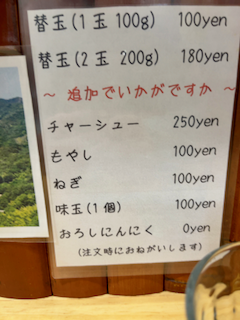 替玉(1玉 100g) 100yen
替玉(2玉 200g) 180yen
～ 追加でいかがですか ～
チャーシュー 250yen
もやし 100yen
ねぎ 100yen
味玉(1個) 100yen
おろしにんにく 0yen
(注文時におねがいします)